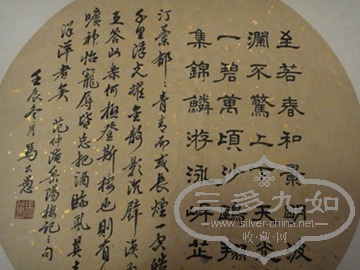 至若春和景明波
瀾不驚上下天
一碧萬頃沙鷗翔
集錦鱗游泳岸芷
汀蘭郁〻青青而或長煙一空皓
千里浮光耀金静影沉璧漁
互答此樂何極登斯樓也則有
曠神怡寵辱皆忘把酒臨風其喜
洋洋者矣 范仲淹岳陽樓記之句
壬辰冬月 馬公愚
三多九如
收藏网